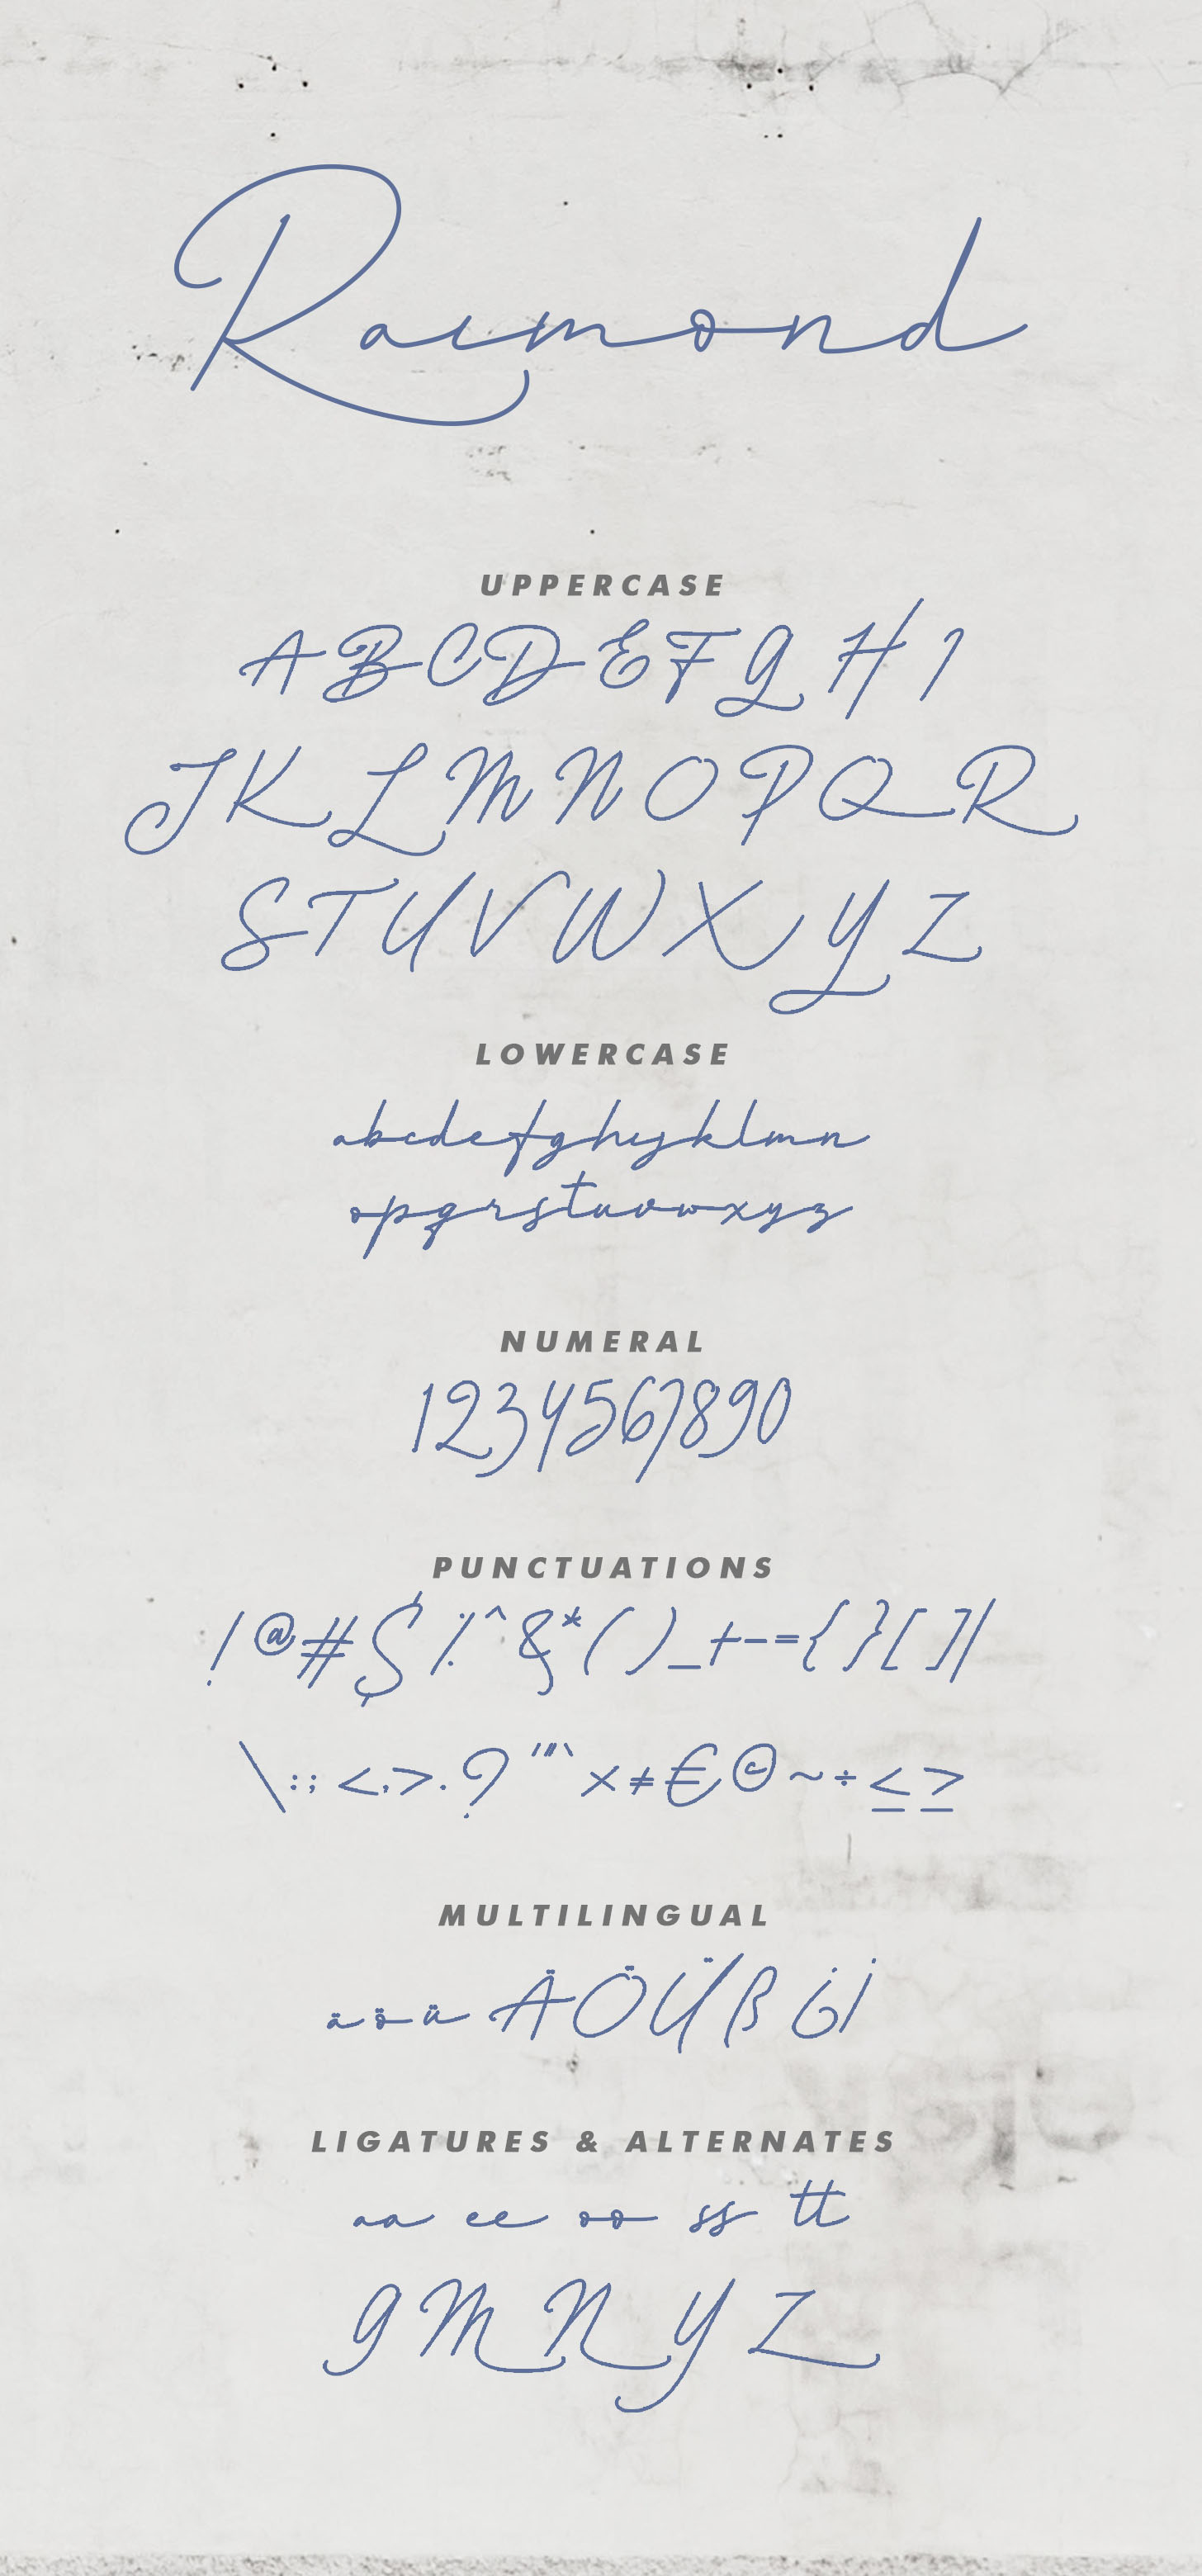 Raimond
UPPERCASE
ABCDEFGHI
JKLMNOPQR
STUVWXYZ
LOWERCASE
abcdefghijklmn
opqrstuvwxyz
NUMERAL
1234567890
PUNCTUATIONS
!@#$%^&*()_+-={}[]|
\:;<,>.?'"`×≠€©~÷≤≥
MULTILINGUAL
äöüÄÖÜß¿¡
LIGATURES & ALTERNATES
aa ee oo ss tt
G M N Y Z